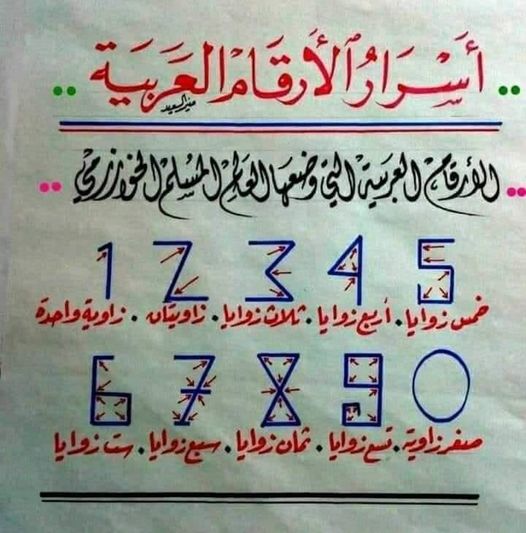 أَسْرَارُ الأَرقَامِ العَرَبَية
منير السعيد
الأرقام العربية التي وضعها العالم المسلم الخوارزمي
1 2 3 4 5
زاوية واحدة . زاويتان . ثلاث زوايا . أربع زوايا . خمس زوايا
6 7 8 9 0
ست زوايا . سبع زوايا . ثمان زوايا . تسع زوايا . صفر زاوية